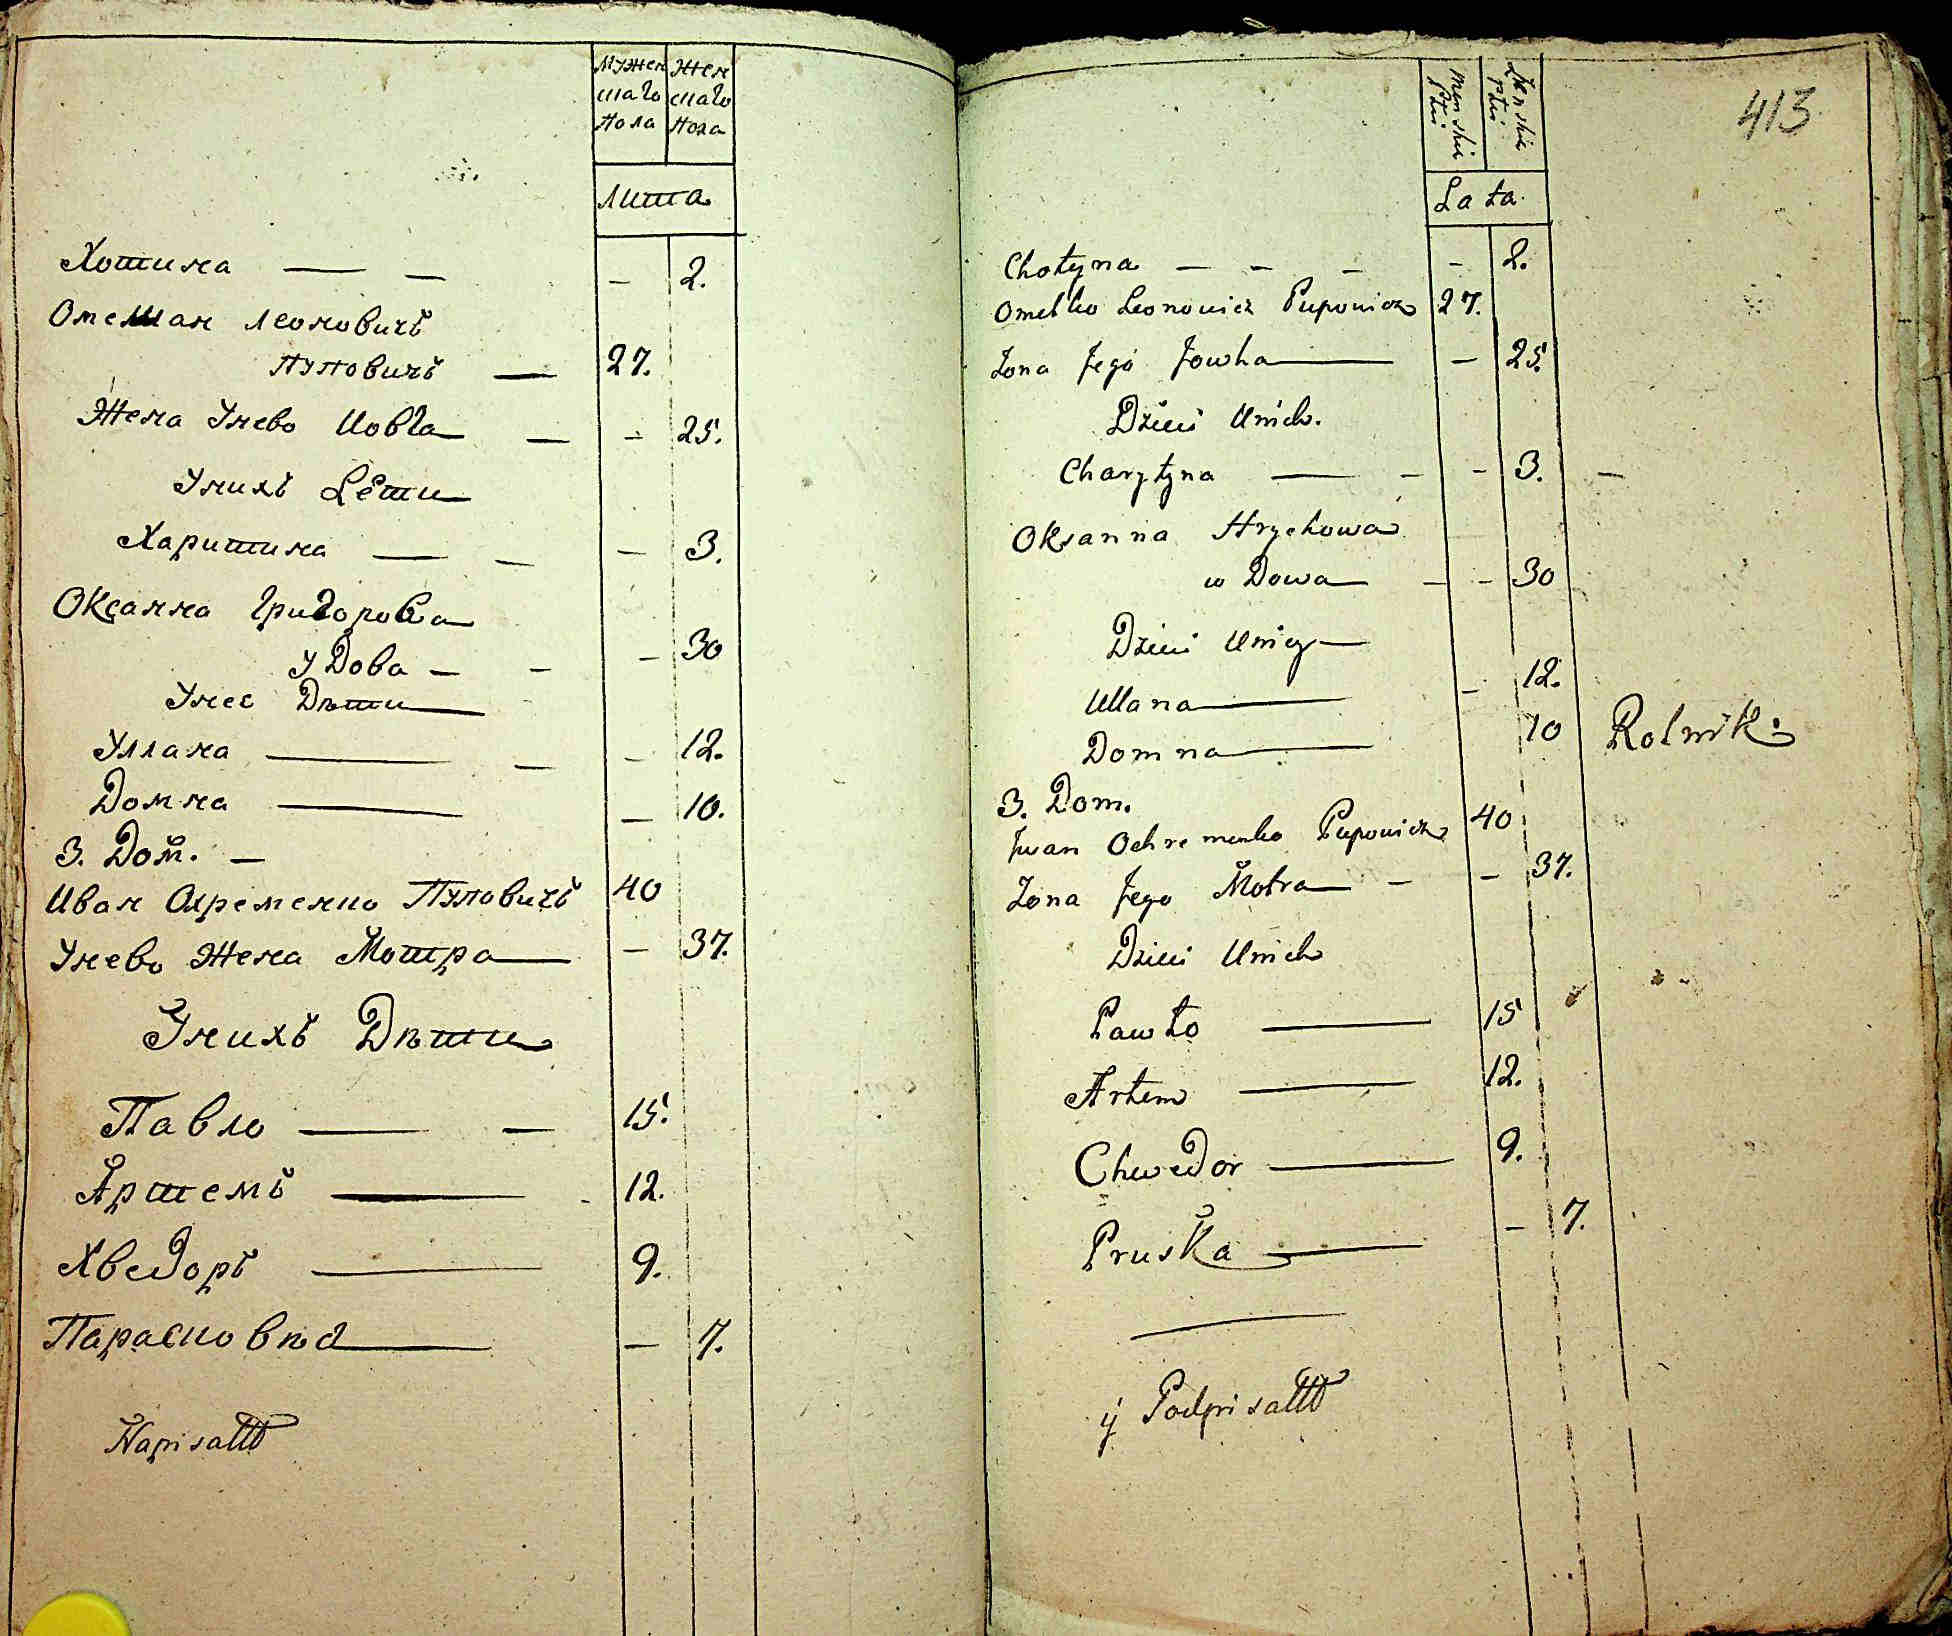 Мужен Жен
скаго скаго
Пола Пола
Лита
Хотина — — — 2.
Омелян Леоновичъ
Пуповичъ — 27.
Жена Унево Иовга — — 25.
Унихъ Дѣти
Харитина — — — 3.
Оксанна Григорова
У Дова — - — 30
Унеє Дѣти
Уллана — — — 12.
Домна — — 10.
3. Домъ. —
Иван Охременко Пуповичъ 40
Унево Жена Мотра — — 37.
Унихъ Дѣти
Павло — — 15.
Артемъ — - 12.
Хведоръ — 9.
Парасковѣа — — 7.
Napisałł
413
Menskii Płci Żenskii Płci
Lata
Chotyna — - - - 2.
Omelko Leonowicz Pupowicz 27.
Żona Jego Jowha — — 25.
Dzieci Unich.
Charytyna — - - 3. —
Oksanna Hrychowa
w Dowa — - - 30
Dzieci Uniey —
Ullana — - 12.
Domna — 10 Rolnik
3. Dom.
Jwan Ochremenko Pupowicz 40
Żona Jego Motra — - - 37.
Dzieci Unich
Pawło — 15
Artem — 12.
Chwedor — 9.
Pruśka — - 7.
ÿ Podpisałł